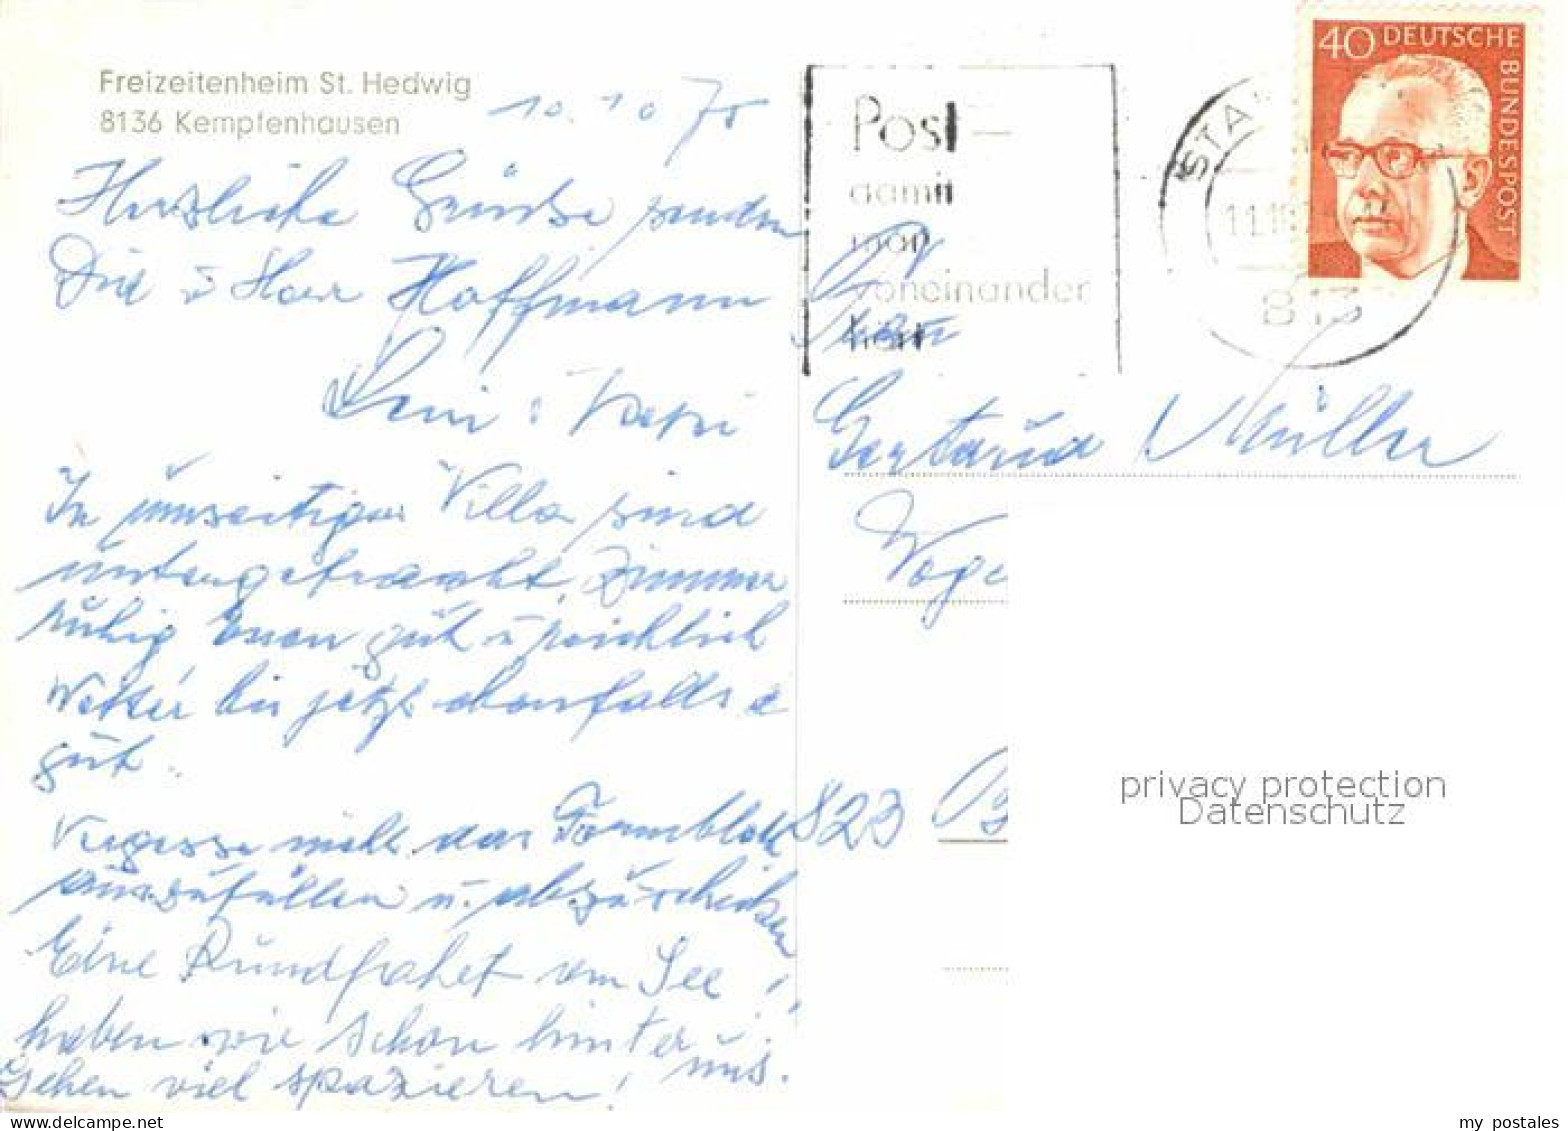 Freizeitenheim St. Hedwig
8136 Kempfenhausen
10.10.75
Herzliche Grüsse senden
Dir u Herr Hoffmann
Leni u
In Villa sind
untergebracht, Zimmer
ruhig Essen gut u reichlich
Wetter bis jetzt ebenfalls
gut.
Vergesse nicht das Formblatt
auszufüllen u. abzuschicken
Eine Rundfahrt am See
haben wir schon hinter
uns.
gehen viel spazieren!
Post –
damit
man
voneinander
hört
STA
11.10.
813
40 DEUTSCHE
BUNDESPOST
Frau
Gertraud Müller
Voge
823
privacy protection
Datenschutz
my postales